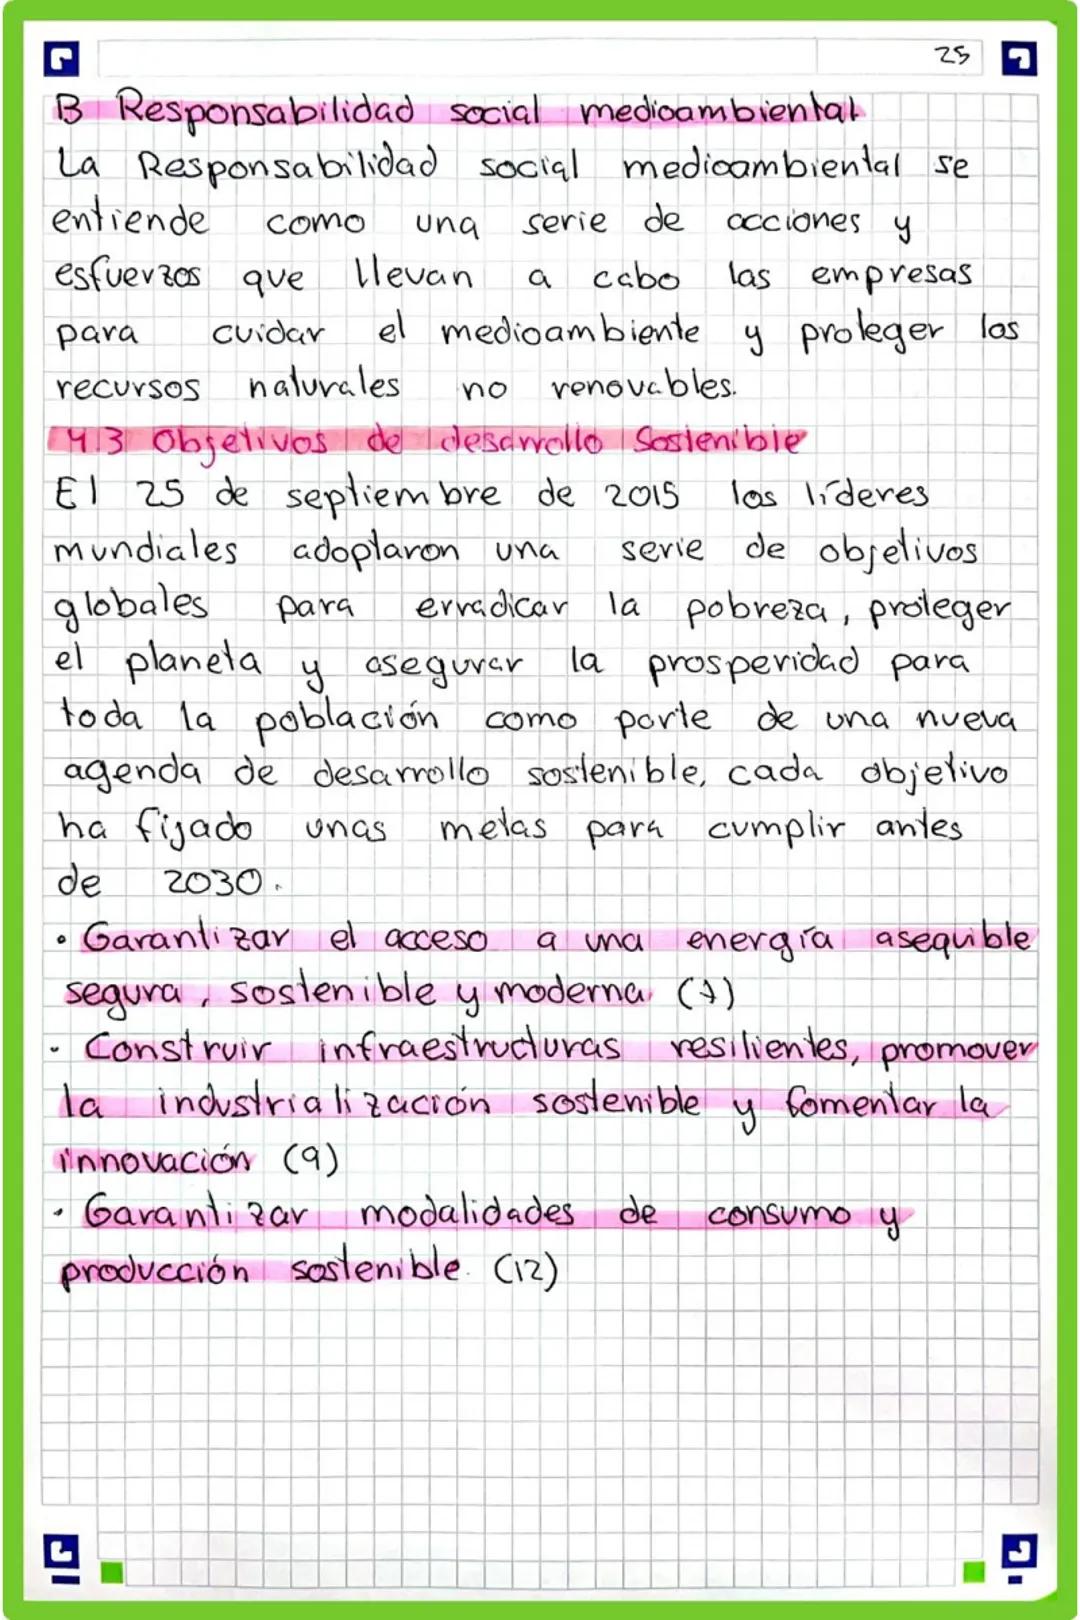 25
B Responsabilidad social medioambiental
La Responsabilidad social medioambiental se
entiende como una serie de acciones y
esfuerzos que llevan a cabo las empresas
para cuidar el medioambiente y proteger los
recursos naturales no renovables.
4.3 Objetivos de desarrollo Sostenible
El 25 de septiembre de 2015 los líderes
mundiales adoptaron una serie de objetivos
globales para erradicar la pobreza, proteger
el planeta y asegurar la prosperidad para
toda la población como parte de una nueva
agenda de desarrollo sostenible, cada objetivo
ha fijado unas metas para cumplir antes
de 2030.
· Garantizar el acceso a una energía asequible
segura, sostenible y moderna (7)
· Construir infraestructuras resilientes, promover
la industrialización sostenible y fomentar la
innovación (9)
· Garantizar modalidades de consumo y
producción sostenible. (12)